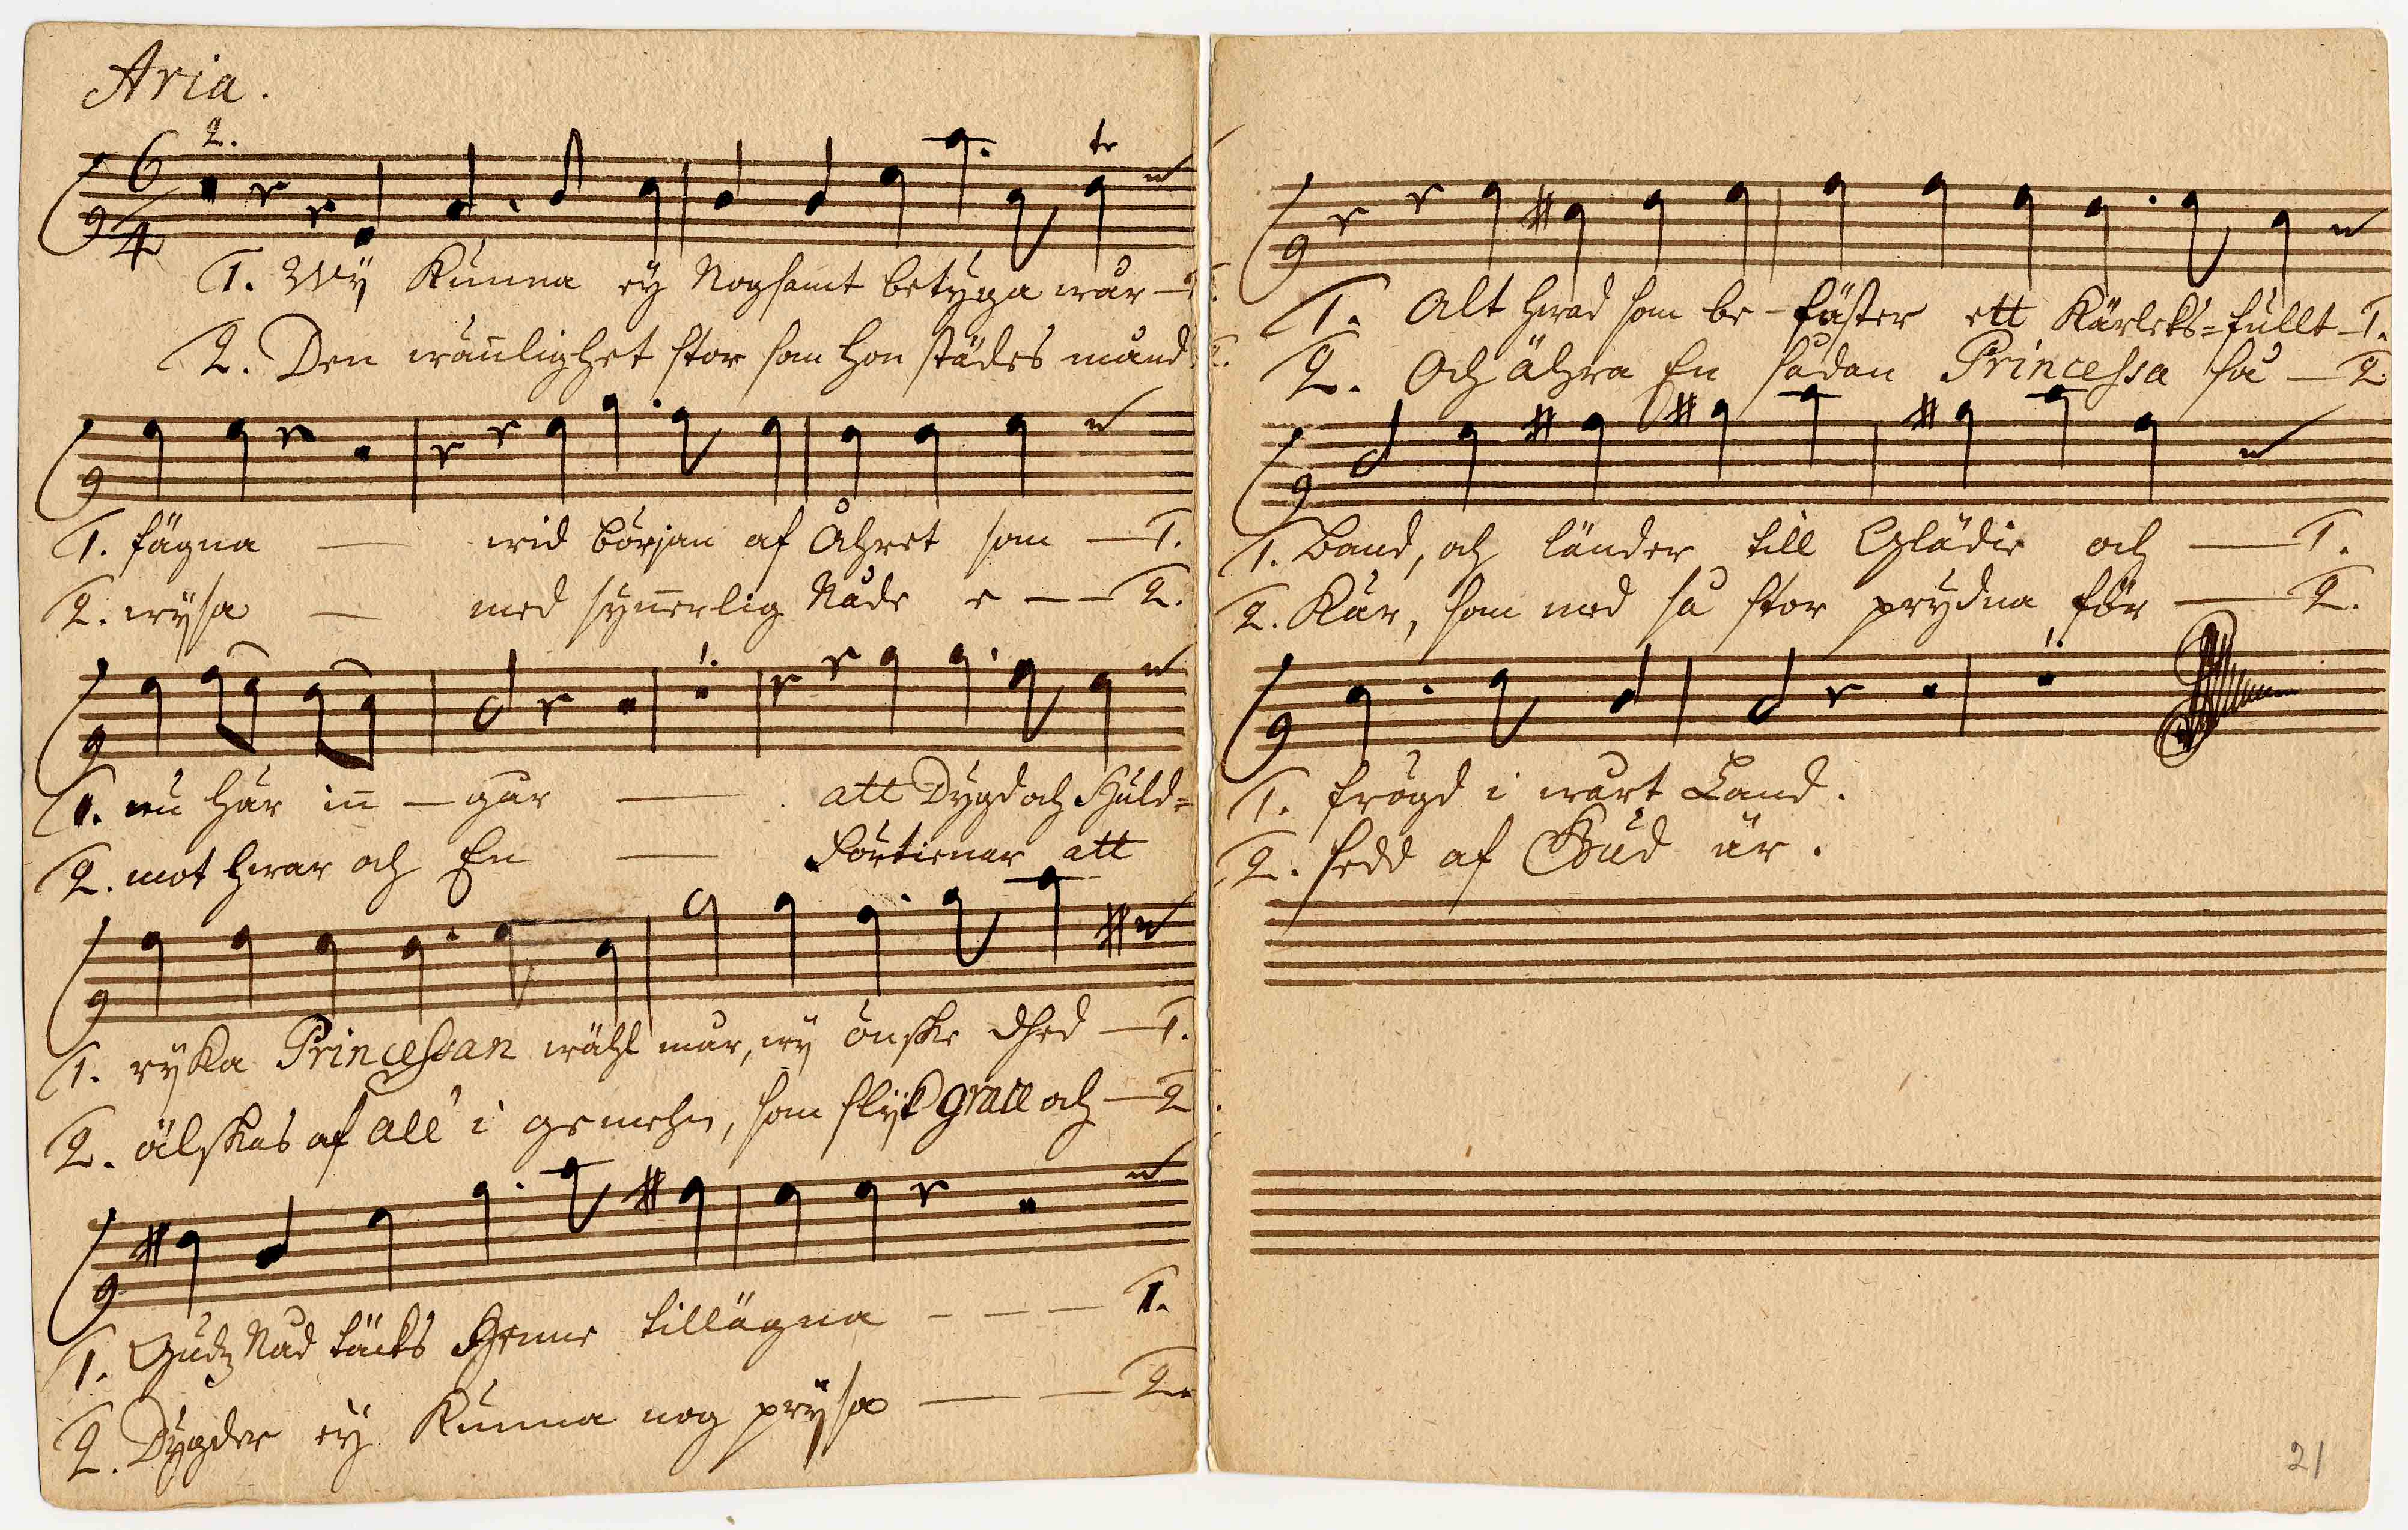 Aria.
6
4
2.
tr
1. Wÿ Kunna eÿ Nogsamt betÿga wår —
2. Den wänlighet stor som hon städes månd
1. fägna — wid början af Åhret som — 1.
2. wÿsa — med synnerlig Nåde e — — 2.
1.
1. nu här in — går — att Dÿgd och Huld=
2. mot hwar och En — Förtienar att
1. rÿka Princessan wähl mår, wÿ önske dhed — 1.
2. älskas af all i gemehn, som slÿk grace och — 2
1. Gudz Nåd täcks Henne tillägna — — — 1.
2. Dÿgder eÿ Kunna nog prÿsa — — 2.
1. Alt hwad som be - fäster ett Kärleks=fullt — 1.
2. Och ähra En sådan Princessa så — 2
1. Band, och länder till Glädie och — 1.
2. Kär, som med så stor prÿdna för — 2.
1.
1. frögd i wårt Land.
2. sedd af Gud är.
21